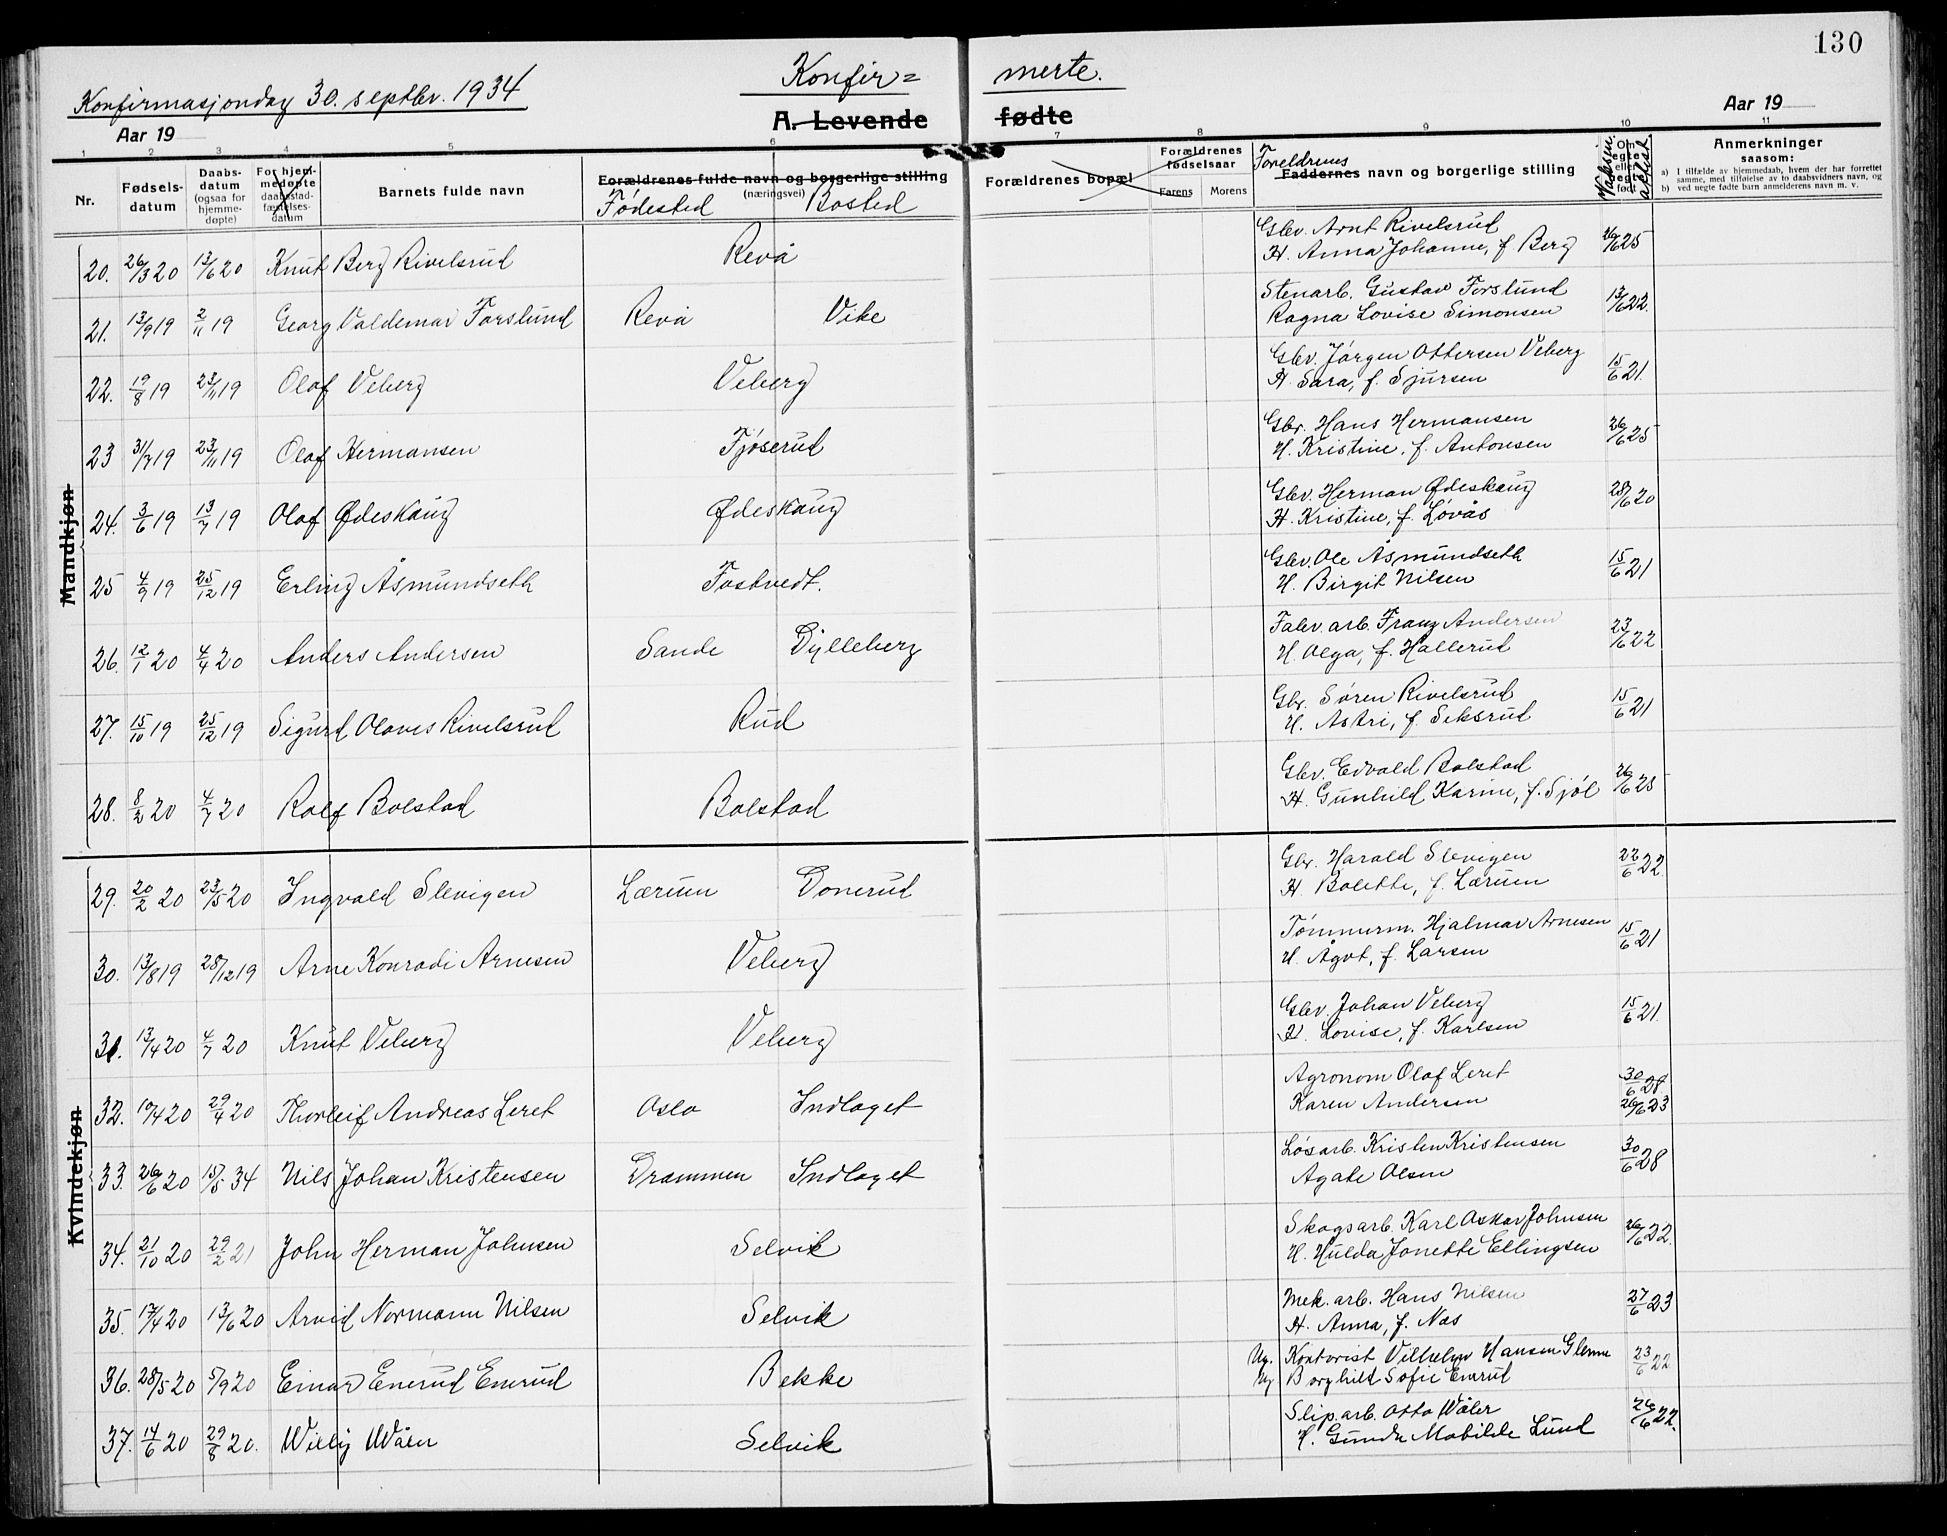 130
Konfirmasjonsdag 30. septbr. 1934
Konfir= merte.
A. Levende fødte
Aar 19 Aar 19
1 2 3 4 5 6 7 8 9 10 11
Nr.
Fødsels-datum
Daabs-datum (ogsaa for hjemme-døpte)
For hjem-medøpte daabsstad-fæstelses-datum
Barnets fulde navn
Forældrenes fulde navn og borgerlige stilling (næringsvei)
Fødested Bosted
Forældrenes bopæl
Forældrenes fødselsaar
Farens Morens
Foreldrenes
Faddernes navn og borgerlige stilling
Om egte eller uegte født
Vaksin. attest
Anmerkninger
saasom:
a) I tilfælde av hjemmedaab, hvem der har forrettet samme, med tilføielse av to daabsvidners navn, og
b) ved uegte fødte barn anmelderens navn m. v.
Mandkjøn
20. 26/3 20 13/6 20 Knut Berg Rivelsrud Revå Gbr. Arnt Rivelsrud 26/6 25
H. Anna Johanne, f. Berg
21. 13/9 19 2/11 19 Georg Valdemar Forslund Revå Vike Stenarb. Gustav Forslund 13/6 22.
Ragna Lovise Simonsen
22. 19/8 19 23/11 19 Olaf Veberg Veberg Gbr. Jørgen Ottersen Veberg 15/6 21.
H. Sara, f. Sjursen
23 31/7 19 23/11 19 Olaf Hermansen Fjøserud Gbr. Hans Hermansen 26/6 25
H. Kristine, f. Antonsen
24. 3/6 19 13/7 19 Olaf Ødeskaug Ødeskaug Gbr. Herman Ødeskaug 28/6 20
H. Kristine, f. Løvås
25 4/9 19 25/12 19 Erling Åsmundseth Tostvedt. Gbr. Ole Åsmundseth 15/6 21
H. Birgit Nilsen
26. 12/1 20 4/4 20 Anders Andersen Sande Dylleberg Fabr. arb. Franz Andersen 23/6 22
H. Olga, f. Hallerud
27. 15/10 19 25/12 19 Sigurd Olaves Rivelsrud Rud Gbr. Søren Rivelsrud 15/6 21
H. Astri, f. Seksrud
28. 8/2 20 4/7 20 Rolf Bolstad Bolstad Gbr. Edvald Bolstad 26/6 25
H. Gunhild Karine, f. Sjøl
Kvindekjøn
29. 20/2 20 23/5 20 Ingvald Slevigen Lærum Donerud Gbr. Harald Slevigen 22/6 22.
H. Bolette, f. Lærum
30. 13/8 19 28/12 19 Arne Konradi Arnesen Veberg Tømmerm. Hjalmar Arnesen 15/6 21
H. Ågot, f. Larsen
31. 13/4 20 4/7 20 Knut Veberg Veberg Gbr. Johan Veberg 15/6 21.
H. Lovise, f. Karlsen
32. 10/4 20 29/4 20 Thorleif Andreas Leret Oslo Indlaget Agronom Olaf Leret 30/6 28
Karen Andersen 26/6 23
33. 26/6 20 15/5 34 Nils Johan Kristensen Drammen Indlaget Løsarb. Kristen Kristensen 30/6 28
Agate Olsen
34. 21/10 20 29/2 21 John Herman Johnsen Selvik Skogsarb. Karl Oskar Johnsen 26/6 22.
H. Hulda Jonette Ellingsen
35. 17/4 20 13/6 20 Arvid Normann Nilsen Selvik Mek. arb. Hans Nilsen 27/6 23
H. Anna, f. Nas
36. 28/5 20 5/9 20 Einar Enerud Enerud Bekke Ug. Kontorist Vilhelm Hansen Glenne 23/6 22
Ug Borghild Sofie Enerud
37. 14/6 20 29/8 20. Willy Wåler Selvik Slip. arb. Otto Wåler 26/6 22.
H. Gunda Mabilde Lund